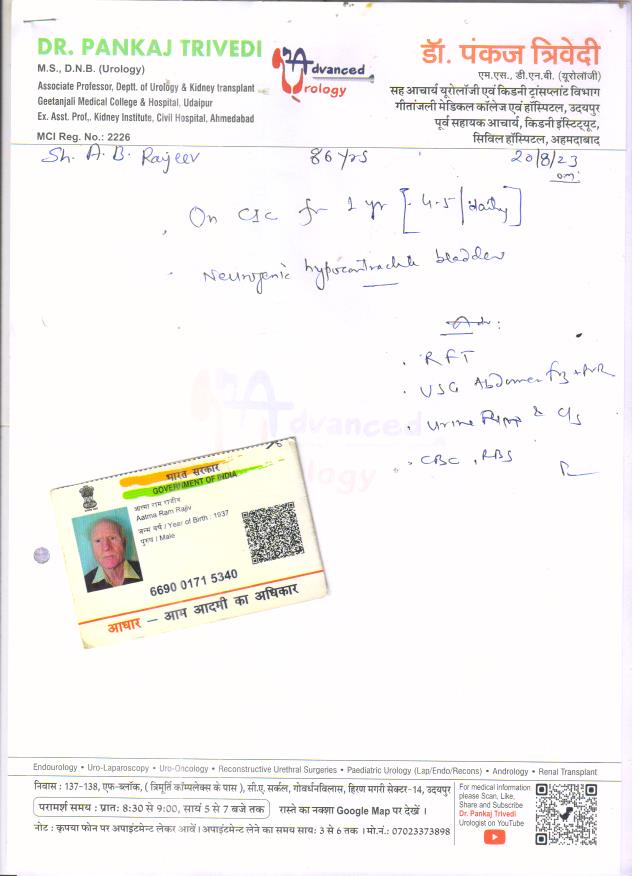 DR. PANKAJ TRIVEDI
M.S., D.N.B. (Urology)
Associate Professor, Deptt. of Urology & Kidney transplant
Geetanjali Medical College & Hospital, Udaipur
Ex. Asst. Prof,. Kidney Institute, Civil Hospital, Ahmedabad
MCI Reg. No.: 2226
Advanced
Urology
डॉ. पंकज त्रिवेदी
एम.एस., डी.एन.बी. (यूरोलॉजी)
सह आचार्य यूरोलॉजी एवं किडनी ट्रांसप्लांट विभाग
गीतांजली मेडिकल कॉलेज एवं हॉस्पिटल, उदयपुर
पूर्व सहायक आचार्य, किडनी इंस्टिट्यूट,
सिविल हॉस्पिटल, अहमदाबाद
Sh. A. B. Rajeev 86 yrs 20/8/23
On CIC for 1 yr [4-5/daily]
Neurogenic hypocontractile bladder
Adv:
RFT
USG Abdomen + PVR
Urine & C/S
CBC, RBS
Advanced
Urology
भारत सरकार
GOVERNMENT OF INDIA
आत्मा राम राजीव
Aatma Ram Rajiv
जन्म वर्ष / Year of Birth : 1937
पुरुष / Male
6690 0171 5340
आधार – आम आदमी का अधिकार
Endourology • Uro-Laparoscopy • Uro-Oncology • Reconstructive Urethral Surgeries • Paediatric Urology (Lap/Endo/Recons) • Andrology • Renal Transplant
निवास : 137-138, एफ-ब्लॉक, ( त्रिमूर्ति कॉम्पलेक्स के पास ), सी.ए. सर्कल, गोवर्धनविलास, हिरण मगरी सेक्टर-14, उदयपुर
परामर्श समय : प्रात: 8:30 से 9:00, सायं 5 से 7 बजे तक रास्ते का नक्शा Google Map पर देखें ।
नोट : कृपया फोन पर अपाइंटमेन्ट लेकर आवें। अपाइंटमेन्ट लेने का समय साय: 3 से 6 तक । मो.नं.: 07023373898
For medical information
please Scan, Like,
Share and Subscribe
Dr. Pankaj Trivedi
Urologist on YouTube